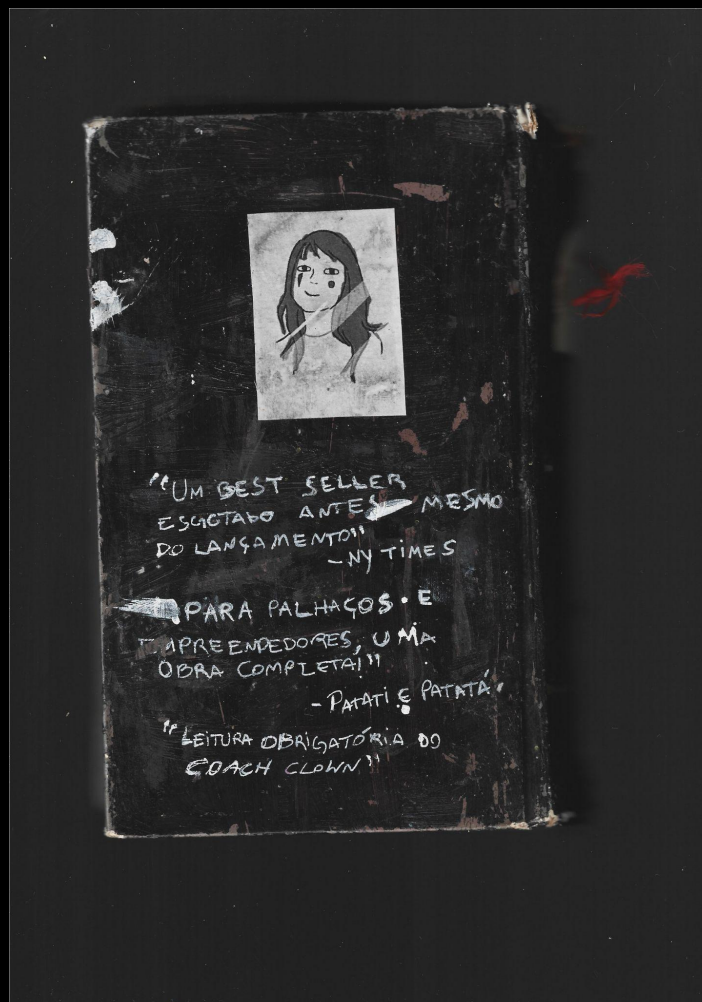 "UM BEST SELLER
ESGOTADO ANTES MESMO
DO LANÇAMENTO"
-NY TIMES
PARA PALHAÇOS E
EMPREENDEDORES, UMA
OBRA COMPLETA!"
-PATATI E PATATÁ
"LEITURA OBRIGATÓRIA DO
COACH CLOWN"